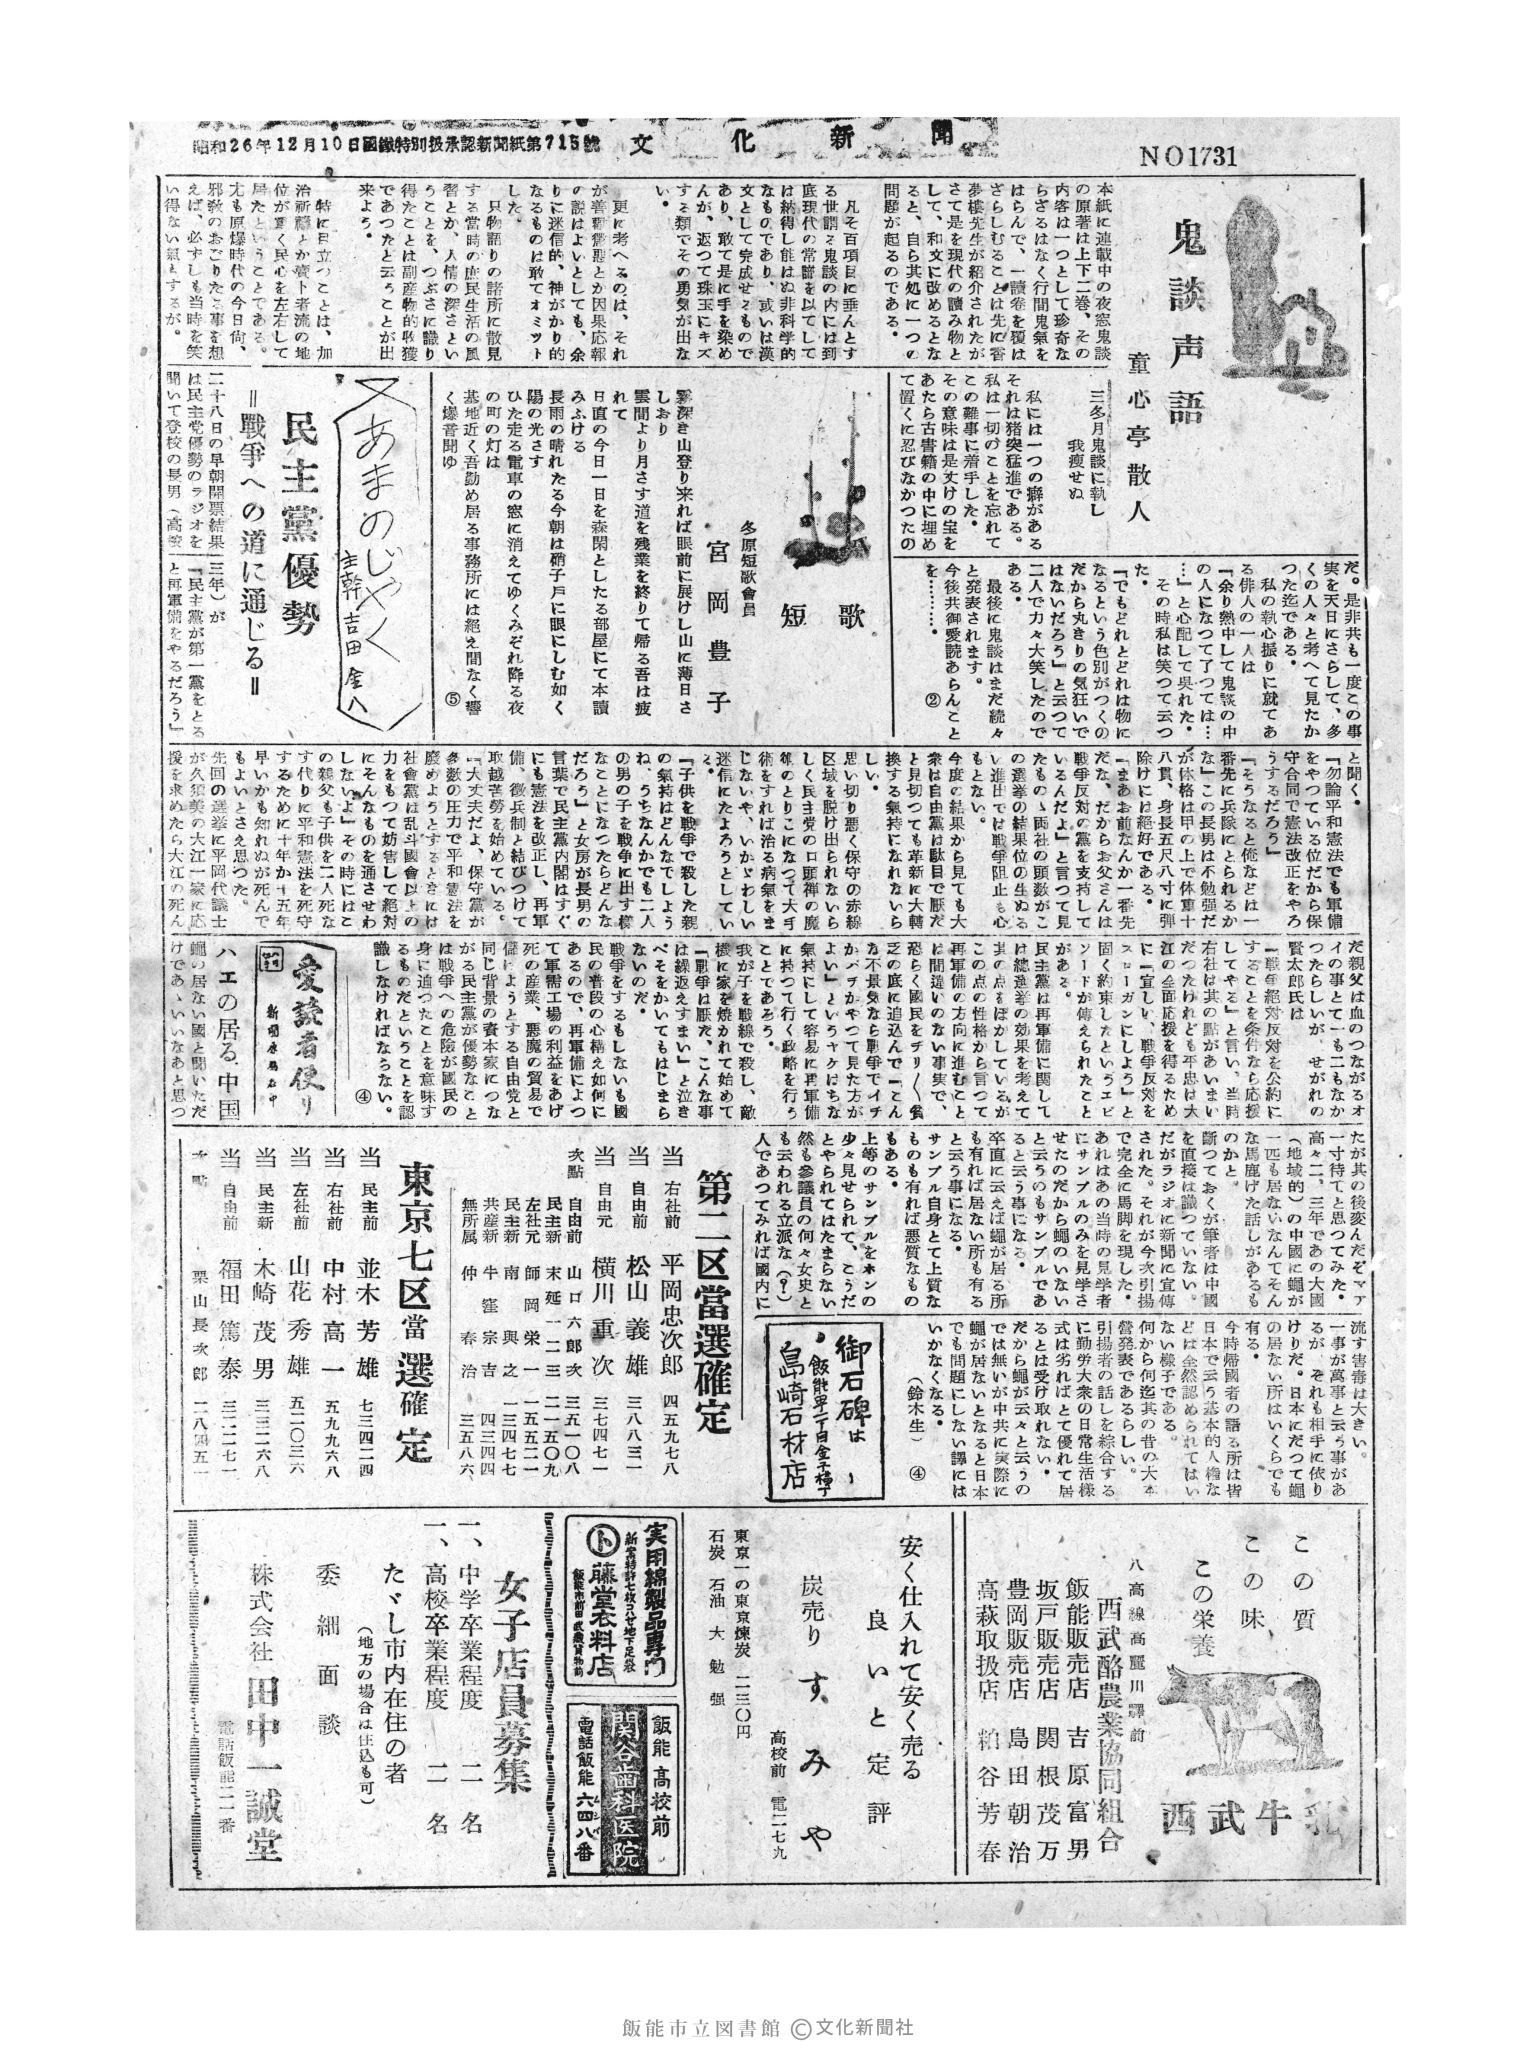 昭和26年12月10日國鐵特別扱承認新聞紙第715號
文化新聞
NO1731
鬼談声語
童心亭散人
三冬月鬼談に執し
我痩せぬ
本紙に連載中の夜窓鬼談
の原著は上下二巻、その
内容は一つとして珍奇な
らざるはなく行間鬼氣を
はらんで、一讀卷を覆は
ざらしむることは先に香
夢樓先生が紹介されたが
さて是を現代の讀み物と
して、和文に改めるとな
ると、自ら其処に一つの
問題が起るのである。
凡そ百項目に垂んとす
る世謂る鬼談の内には到
底現代の常識を以てして
は納得し能はぬ非科学的
なものであり、或いは漢
文として完成せるもので
あり、敢て是に手を染め
んが、返つて珠玉にキズ
する類でその勇気が出な
い。
更に考へるのは、それ
が善勸懲悪とか因果応報
の説はよいとしても、余
りに迷信的、神がかり的
なるものは敢てオミット
した。
只物語りの諸所に散見
する當時の庶民生活の風
習とか、人情の深さとい
うことを、つぶさに識り
得たことは副産物的收獲
であつたと云うことが出
来よう。
特に目立つことは、加
治祈禱とか賣卜者流の地
位が重く民心を左右して
居たということである。
尤も原爆時代の今日尙、
邪敎のおごりたる事を想
えば、必ずしも当時を笑
い得ない氣とするが。
私には一つの癖がある
それは猪突猛進である。
私は一切のことを忘れて
この難事に着手した。
その意味は是丈けの宝を
あたら古書籍の中に埋め
て置くに忍びなかつたの
だ。是非共も一度この事
実を天日にさらして、多
くの人々と考へて見たか
つた迄である。
私の執心振りに就てあ
る俳人の一人は
『余り熱中して鬼談の中
の人になつて了つては…
…』と心配して呉れた。
その時私は笑つて云つ
た。
『でもどれとどれは物に
なるという色別がつくの
だから丸きりの気狂いで
はないだろう』と云つて
二人で力々大笑したので
ある。
最後に鬼談はまだ続々
と発表されます。
今後共御愛読あらんこと
を………。
②
短歌
冬原短歌會員
宮岡豊子
霧深き山登り来れば眼前に展けし山に薄日さ
しおり
雲間より月さす道を残業を終りて帰る吾は疲
れて
日直の今日一日を森閑としたる部屋にて本讀
みふける
長雨の晴れたる今朝は硝子戸に眼にしむ如く
陽の光さす
ひた走る電車の窓に消えてゆくみぞれ降る夜
の町の灯は
基地近く吾勤め居る事務所には絶え間なく響
く爆音聞ゆ
⑤
又あまのじゃく
主幹 吉田金八
民主黨優勢
＝戰爭への道に通じる＝
二十八日の早朝開票結果
は民主党優勢のラジオを
聞いて登校の長男（高校
三年）が
『民主黨が第一黨をとる
と再軍備をやるだろう』
と聞く。
『勿論平和憲法でも軍備
をやつている位だから保
守合同で憲法改正をやろ
うするだろう』
『そうなると俺などは一
番先に兵隊にとられるか
な』この長男は不勉强だ
が体格は甲の上で体重十
八貫、身長五尺八寸に弾
除けには絶好である。
『まあお前なんか一番先
だな、だからお父さんは
戰爭反対の黨を支持して
いるんだよ』と言つて見
たものゝ両社の頭数がこ
の選挙の結果位の生ぬる
い進出では戦争阻止も心
もとない。
今度の結果から見ても大
衆は自由黨は駄目で厭だ
と見切つても革新に大轉
換する氣持になれないら
しい。
思い切り悪く保守の赤線
区域を脱け出られないら
しく民主党の口頭禅の魔
術のとりこになつて大手
術をすれば治る病氣をま
じないや、いかゞわしい
迷信にたよろうとしてい
る。
『子供を戰爭で殺した親
の氣持はどんなでしよう
ね、うちなんかでも二人
の男の子を戰爭に出す樣
なことになつたらどんな
だろう』と女房が長男の
言葉で民主黨内閣はすぐ
にも憲法を改正し、再軍
備、徴兵制と結びつけて
取越苦勞を始めている。
『大丈夫だよ、保守黨が
多数の圧力で平和憲法を
廢めようとするときには
社會黨は乱斗國會以上の
力をもつて妨害して絶対
にそんなものを通させわ
しないよ』その時にはこ
の親父も子供を二人死な
す代りに平和憲法を死守
するために十年か十五年
早いかも知れぬが死んで
もよいとさえ思つた。
先回の選挙に平岡代議士
が久須美の大江一家に応
援を求めたら大江の死ん
だ親父は血のつながるオ
イの事とて一も二もなか
つたらしいが、せがれの
賢太郎氏は
『戰爭絶対反対を公約に
することを条件なら応援
してやる』と言い、当時
右社は其の點があいまい
だつたけれども平忠は大
江の全面応援を得るため
に『宜しい、戰爭反対を
スローガンにしよう』と
固く約束したというエピ
ソードが傳えられたこと
がある。
民主黨は再軍備に関して
は總選挙の効果を考えて
其の点をぼかしているが
この点の性格から言つて
再軍備の方向に進むこと
は間違いのない事実で、
恐らく國民をヂリ〱貧
乏の底に追込んで『こん
な不景気なら戰爭でイチ
かバチかやつて見た方が
よい』というヤケばちな
氣持にして容易に再軍備
に持つて行く政略を行う
ことであろう。
我が子を戰線で殺し、敵
機に家を燒かれて始めて
『戰爭は厭だ、こんな事
は繰返えすまい』と泣き
べそをかいてもはじまら
ないのだ。
戰爭をするもしないも國
民の普段の心構え如何に
あるので、再軍備によつ
て軍需工場の利益をあげ
死の産業、悪魔の貿易で
儲けようとする自由党と
同じ背景の資本家につな
がる民主黨が優勢なこと
は戰爭への危險が國民の
身に迫つたことを意味す
るものだということを認
識しなければならない。
④
愛読者便り
ハエの居る中国
蠅の居ない國と聞いただ
けであゝいいなあと思つ
たが其の後変んだぞマア
一寸待てと思つてみた。
高々二、三年であの大國
（地域的）の中國に蠅が
一匹も居ないなんてそん
な馬鹿げた話しがあるも
のかと。
斷つておくが筆者は中國
を直接は識つていない。
だがラジオに新聞に宣傳
された。それが今次引揚
で完全に馬脚を現した。
あれはあの当時の見学者
にサンプルのみを見学さ
せたのだから蠅のいない
と云うのもサンプルであ
ると云う事になる。
卒直に云えば蠅が居る所
も有れば居ない所も有る
と云う事になる。
サンプル自身とて上質な
ものも有れば悪質なもの
もある。
上等のサンプルをホンの
少々見せられて、こうだ
とやられてはたまらない
然も参議員の何々女史と
も云われる立派な（？）
人であつてみれば國内に
流す害毒は大きい。
一事が萬事と云う事があ
るが、それも相手に依り
けりだ。日本にだつて蠅
の居ない所はいくらでも
有る。
今時帰國者の語る所は皆
日本で云う基本的人権な
どは全然認められてはい
ない様子である。
何から何迄其の昔の大本
營発表であるらしい。
引揚者の話しを綜合する
に勤労大衆の日常生活樣
式は劣ればとて優れて居
るとは受け取れない。
だから蠅が云々と云うの
では無いが中共に実際に
蠅が居ないとなると日本
でも問題にしない譯には
いかなくなる。
（鈴木生）
④
第二区當選確定
当 右社前 平岡忠次郎 四五九七八
当 自由前 松山義雄 三八八三一
当 自由元 横川重次 三七四七一
次點 自由前 山口六郎次 三五一〇八
民主新 末延一二三 二一五〇九
左社元 師岡栄一 一五五二一
民主新 南與之 一三四七七
共産新 牛窪宗吉 四三四四
無所属 仲春治 三五八六
東京七区當選確定
当 民主前 並木芳雄 七三四二四
当 右社前 中村高一 五九九六八
当 左社前 山花秀雄 五二〇三六
当 民主新 木崎茂男 三三二六八
当 自由前 福田篤泰 三二二七一
次點 栗山長次郎 二八四五一
御石碑は
飯能単二丁目金子横丁
島崎石材店
この質
この味
この栄養
西武牛乳
八高線高麗川譯前
西武酪農業協同組合
飯能販売店 吉原富男
坂戸販売店 関根茂万
豊岡販売店 島田朝治
高萩取扱店 粕谷芳春
安く仕入れて安く売る
良いと定評
炭売り すみや
高校前 電二七九
東京一の東京煉炭 二三〇円
石炭 石油 大勉强
実用綿製品専門
新案特許七枚コハゼ地下足袋
ト 藤堂衣料店
飯能市前田 武蔵貨物前
飯能高校前
関谷歯科医院
電話飯能六四八番
女子店員募集
一、中学卒業程度 二名
一、高校卒業程度 二名
たゞし市内在住の者
（地方の場合は住込も可）
委細面談
株式会社 田中一誠堂
電話飯能二一番
飯能市立図書館 ©文化新聞社